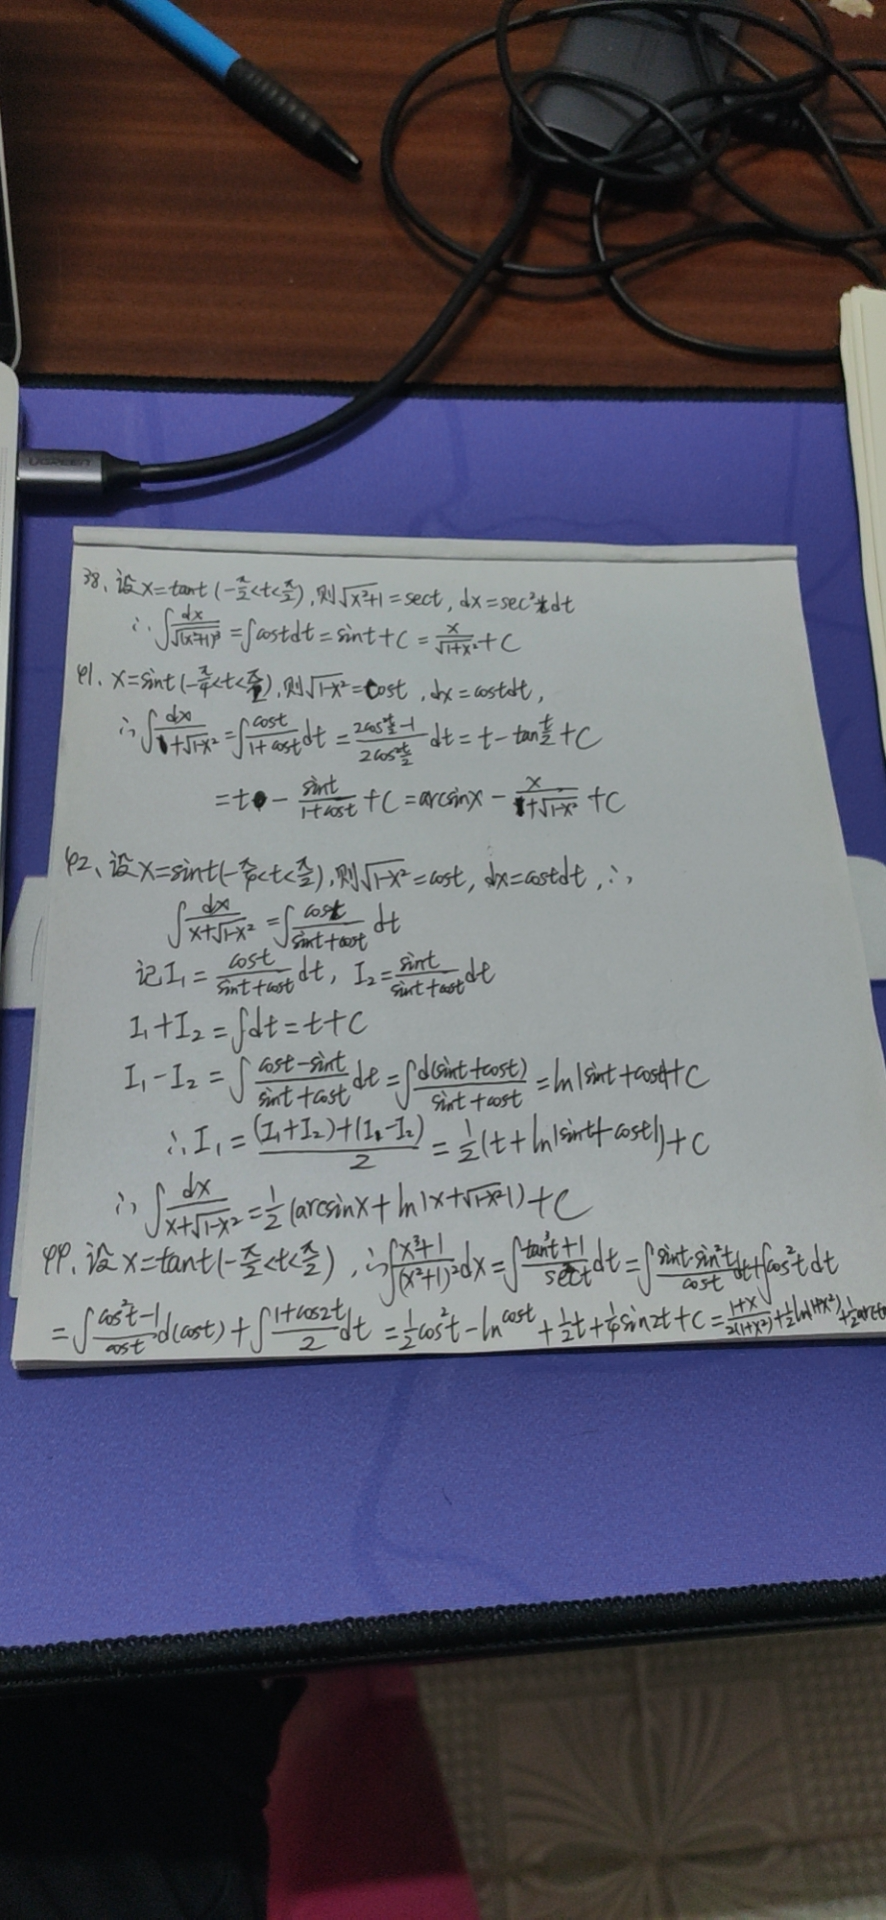 UGREEN
38、设x=tant(-π/2<t<π/2),则√(x²+1)=sect, dx=sec²tdt
∴∫dx/√(x²+1)³=∫costdt=sint+C=x/√(1+x²)+C
41、x=sint(-π/4<t<π/2),则√(1-x²)=cost, dx=costdt,
∴∫dx/(1+√(1-x²))=∫cost/(1+cost)dt=(2cos²(t/2)-1)/(2cos²(t/2))dt=t-tan(t/2)+C
=t-sint/(1+cost)+C=arcsinx-x/(1+√(1-x²))+C
42、设x=sint(-π/4<t<π/2),则√(1-x²)=cost, dx=costdt,∴
∫dx/(x+√(1-x²))=∫cost/(sint+cost)dt
记I₁=cost/(sint+cost)dt, I₂=sint/(sint+cost)dt
I₁+I₂=∫dt=t+C
I₁-I₂=∫(cost-sint)/(sint+cost)dt=∫d(sint+cost)/(sint+cost)=ln|sint+cost|+C
∴I₁=((I₁+I₂)+(I₁-I₂))/2=1/2(t+ln|sint+cost|)+C
∴∫dx/(x+√(1-x²))=1/2(arcsinx+ln|x+√(1-x²)|)+C
44、设x=tant(-π/2<t<π/2),∴∫(x³+1)/(x²+1)²dx=∫(tan³t+1)/sec²t dt=∫(sint·sin²t)/cost dt+∫cos²tdt
=∫(cos²t-1)/cost d(cost)+∫(1+cos2t)/2 dt=1/2cos²t-ln cost+1/2t+1/4sin2t+C=(1+x)/(2(1+x²))+1/2ln(1+x²)+1/2arct